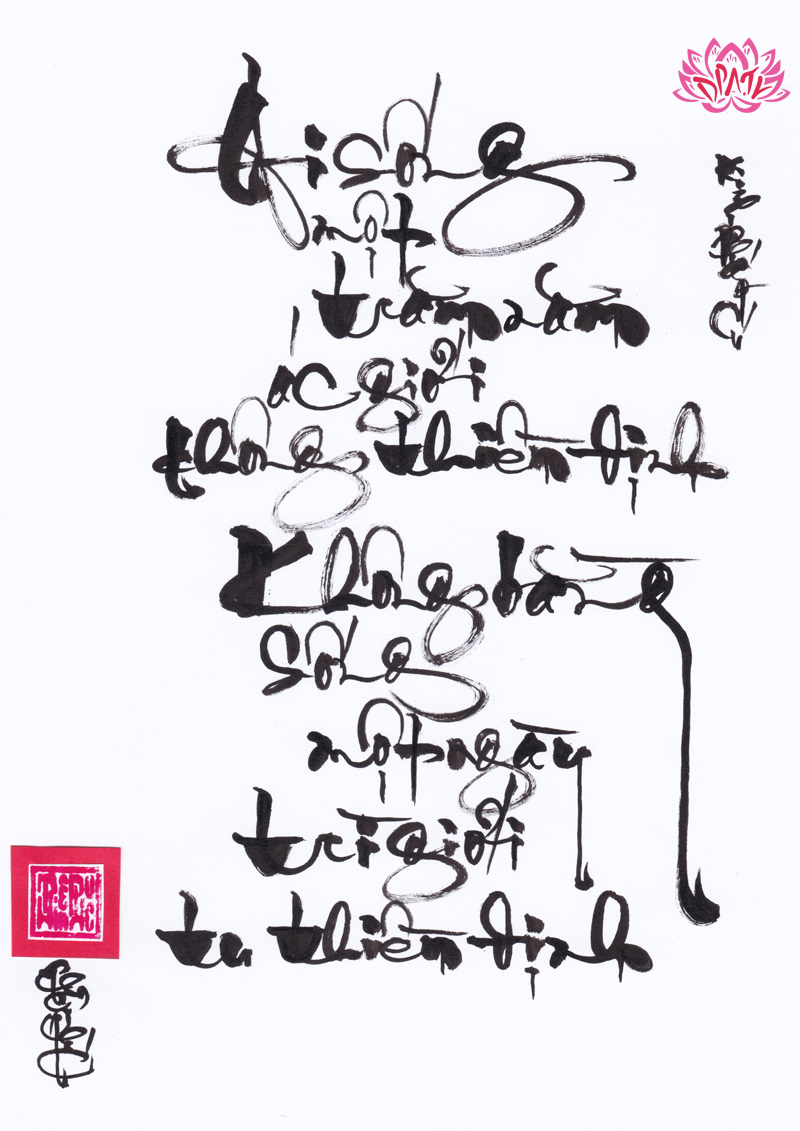 Kinh Pháp Cú
Ai sống
một
trăm năm
ác giới
không thiền định
Không bằng
sống
một ngày
trì giới
tu thiền định